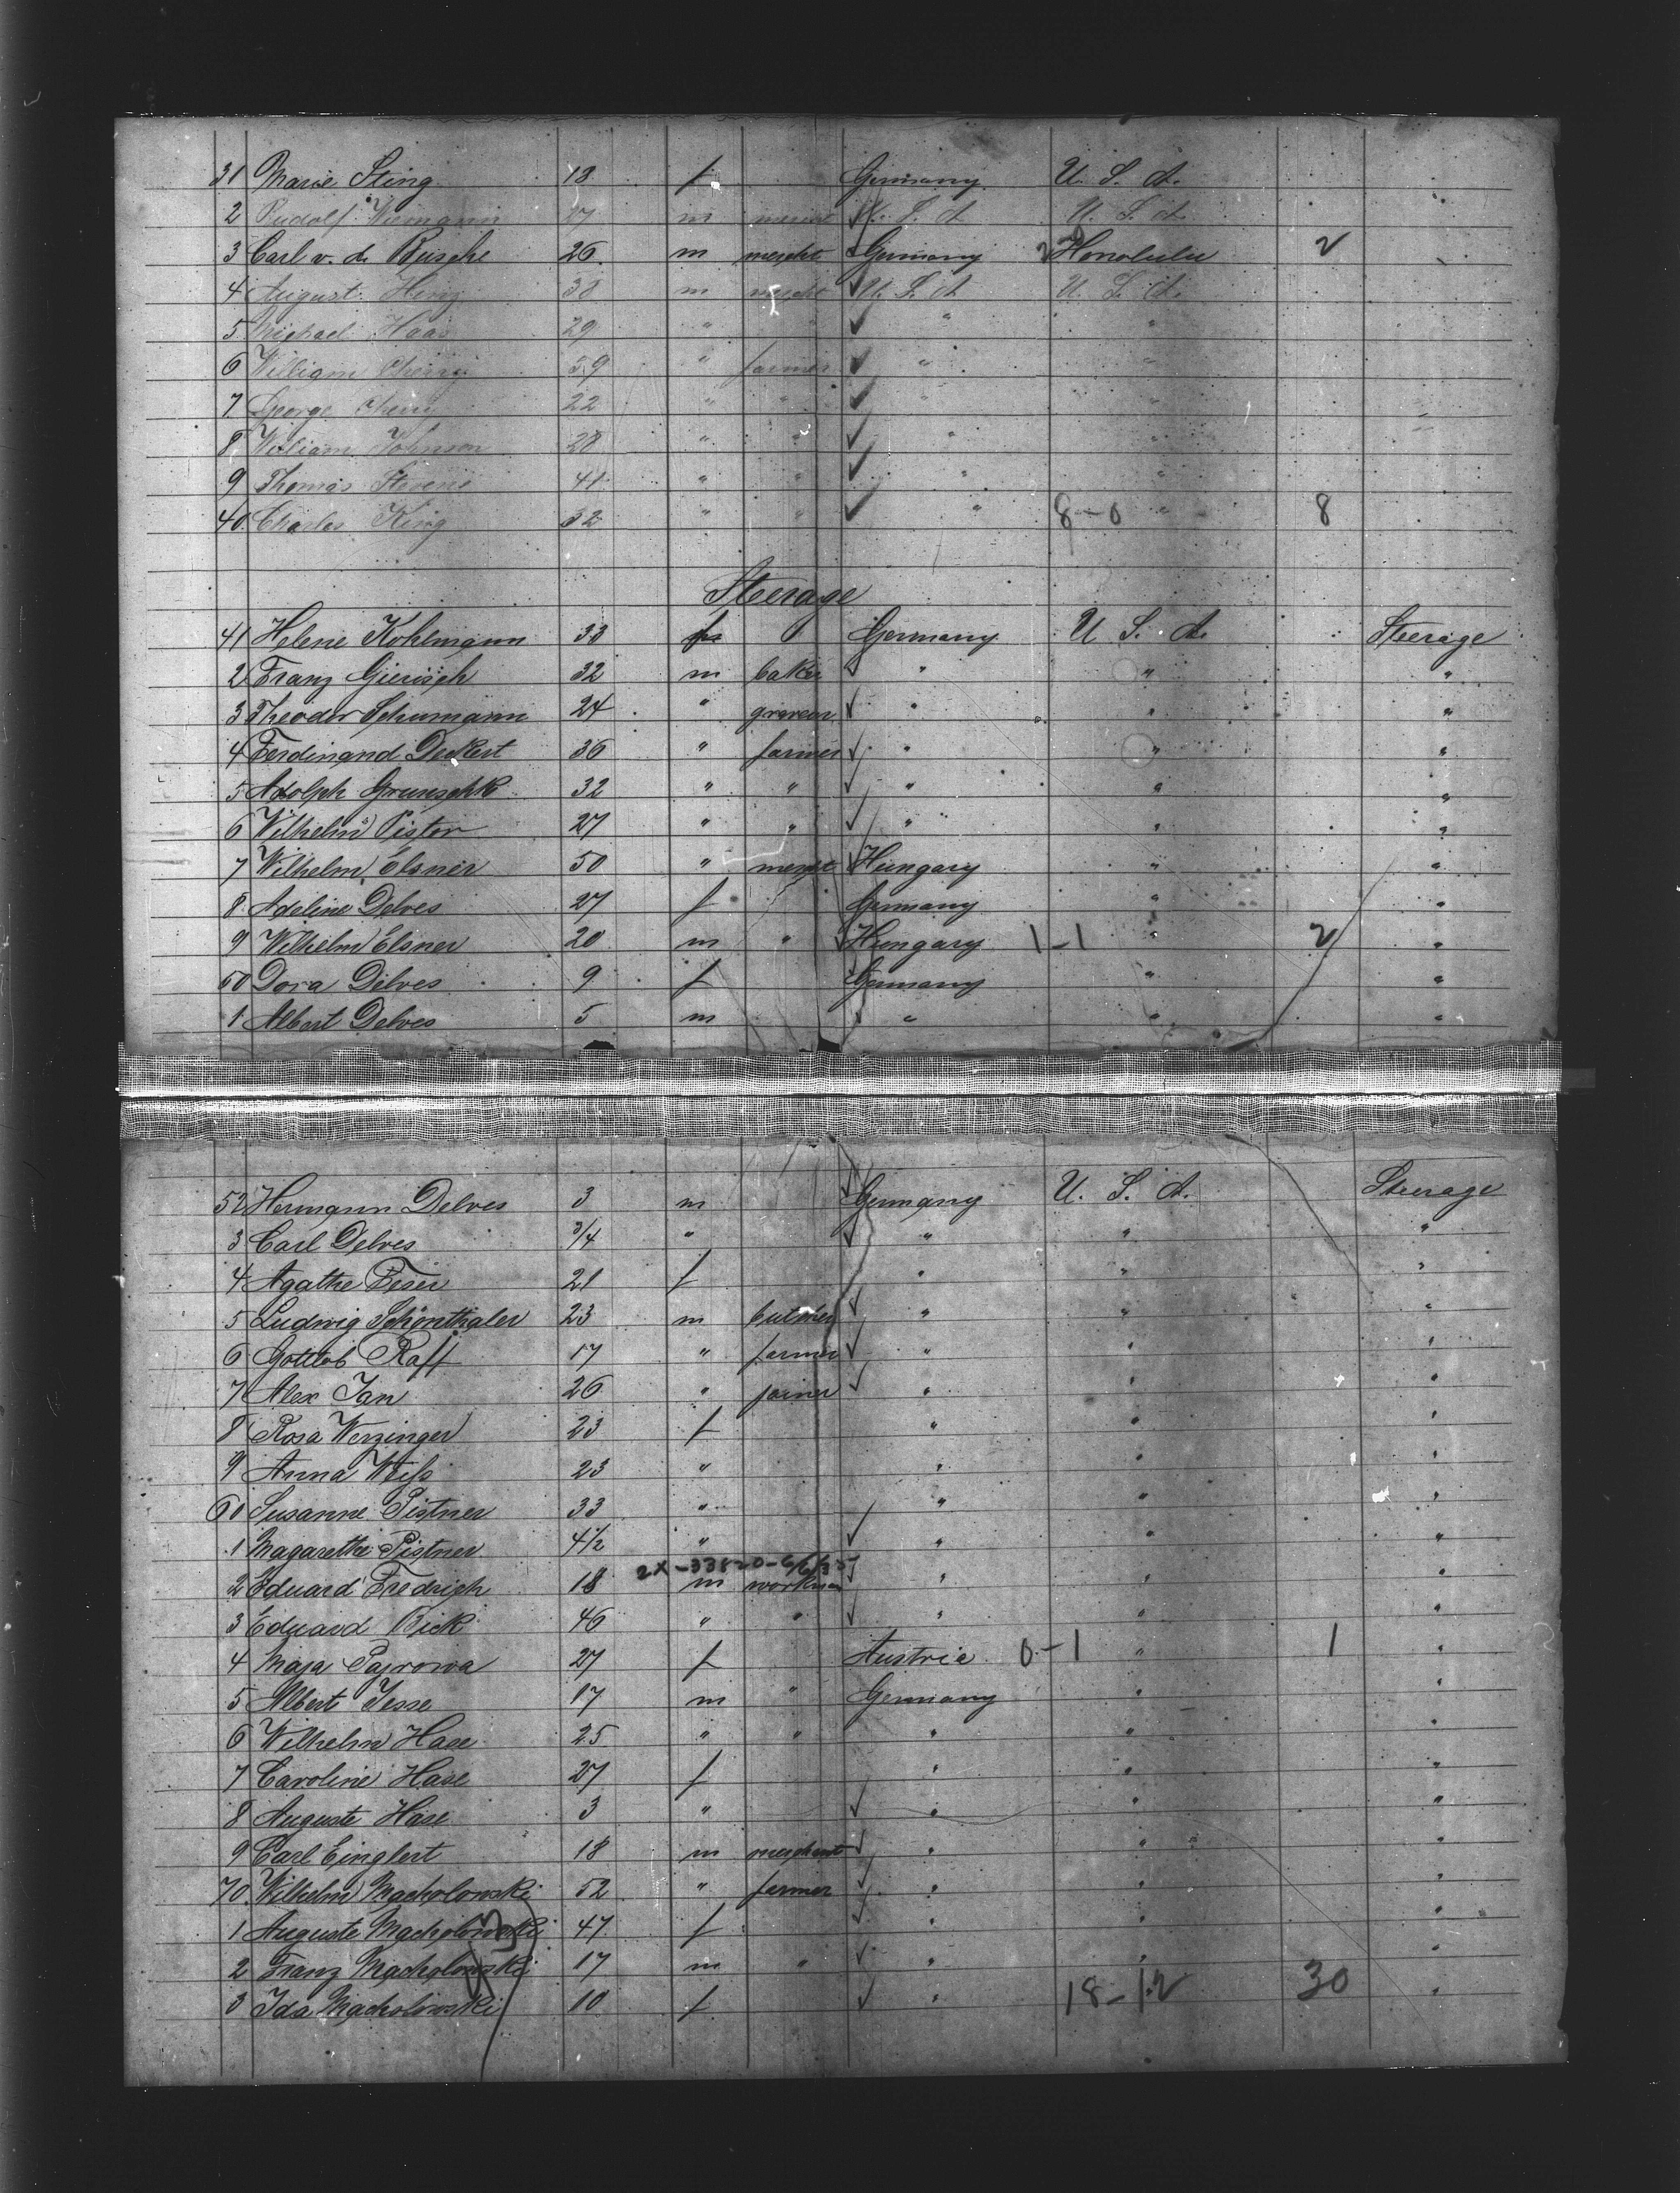 31 Marie Sting 18 f Germany U. S. A.
2 Rudolf Wiemann 27 m mercht U. S. A U. S. A.
3 Carl v. d. Busche 26 m mercht Germany 2 Honolulu 2
4 August Hinz 38 m mercht U. S. A U. S. A.
5 Michael Haas 29 " " "
6 William Cherry 59 " farmer " "
7 George Cherry 22 " " " "
8 William Johnson 28 " " " "
9 Thomas Stevens 41 " " " "
40 Charles King 32 " " " 8-0 " 8
Steerage
41 Helene Kohlmann 33 f Germany U. S. A. Steerage
2 Franz Gierisch 32 m baker " " "
3 Theodor Schumann 24 " graveur " " "
4 Ferdinand Deckert 36 " farmer " " "
5 Adolph Grunschk 32 " " " " "
6 Wilhelm Pistor 27 " " " " "
7 Wilhelm Elsner 50 " mercht Hungary " "
8 Adeline Delves 27 f Germany " "
9 Wilhelm Elsner 20 m " Hungary 1-1 " 2 "
50 Dora Delves 9 f Germany " "
1 Albert Delves 5 m " " "
52 Hermann Delves 3 m Germany U. S. A. Steerage
3 Carl Delves 3/4 " " " "
4 Agathe Feser 21 f " " "
5 Ludwig Schönthaler 23 m butcher " " "
6 Gottlob Raff 17 " farmer " " "
7 Alex Jan 26 " joiner " " "
8 Rosa Werzinger 23 f " " "
9 Anna Weiß 23 " " " "
60 Susanne Pistner 33 " " " "
1 Magarethe Pistner 4 1/2 " " " "
2 Eduard Fredrich 18 m workman " " "
3 Eduard Bick 46 " " " " "
4 Maja Pajrowa 27 f Austria 0-1 " 1 "
5 Albert Jesse 17 m " Germany " "
6 Wilhelm Hase 25 " " " " "
7 Caroline Hase 27 f " " "
8 Auguste Hase 3 " " " "
9 Carl Einglert 18 m merchant " " "
70 Wilhelm Macholowski 52 " farmer " " "
1 Auguste Macholowski 47 f " " "
2 Franz Macholowski 17 m " " " "
3 Ida Macholowski 10 f " 18-12 30 "